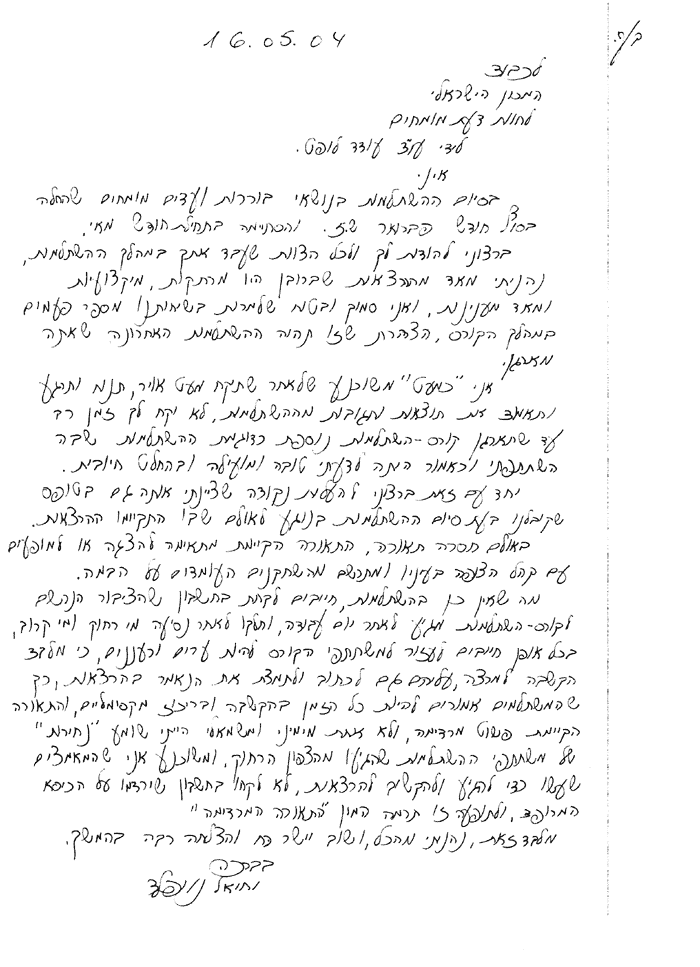 ב/ח.
16.05.04
לכבוד
המכון הישראלי
לחוות דעת מומחים
לידי עו"ד עודד לופט.
א.נ.
בסיום ההשתלמות בנושאי בוררות ועדים מומחים שהחלה
בסוף חודש פברואר ש.ז. והסתיימה בתחילת חודש מאי,
ברצוני להודות לך ולכל הצוות שעבד אתך במהלך ההשתלמות,
נהניתי מאד מההרצאות שברובן היו מרתקות, מיקצועיות
ומאד מענינות, ואני סמוך ובטוח שלמרות בשיחותנו מספר פעמים
במהלך הקורס, הצהרת שזו תהיה ההשתלמות האחרונה שאתה
מארגן.
אני "כמעט" משוכנע שלאחר שתיקח מעט אויר, תנוח ותרגע
ותאמוד את תוצאות ותגובות מההשתלמות, לא יקח לך זמן רב
עד שתארגן קורס-השתלמות נוספת כדוגמת ההשתלמות שבה
השתתפתי וכאמור היתה לדעתי טובה ומועילה ובהחלט חיובית.
יחד עם זאת ברצוני להעלות נקודה שציינתי אותה גם בטופס
שקיבלנו בעת סיום ההשתלמות בנוגע לאולם שבו התקיימו ההרצאות.
באולם חסרה תאורה, התאורה הקיימת מתאימה להצגה או למופעים
עם קהל הצופה בעיניו ומתרשם מהשחקנים העומדים על הבמה.
מה שאין כן בהשתלמות, חייבים לקחת בחשבון שהציבור הנרשם
לקורס-השתלמות מגיע לאחר יום עבודה, וחלקו לאחר נסיעה מי רחוק ומי קרוב,
בכל אופן חייבים לעזור למשתתפי הקורס להיות ערים ורעננים, כי מלבד
הקשבה למרצה, עליהם גם לכתוב ולתמצת את הנאמר בהרצאות, כך
שהמשתלמים אמורים להיות כל הזמן בהקשבה ובריכוז מקסימליים, והתאורה
הקיימת פשוט מרדימה, ולא אחת מימיני ומשמאלי הייתי שומע "נחירות"
של משתתפי ההשתלמות שהגיעו מהצפון הרחוק, ומשוכנע אני שהמאמצים
שעשו כדי להגיע ולהקשיב להרצאות, לא לקחו בחשבון שירדמו על הכיסא
המרופד, ולתופעה זו תרמה המון "התאורה המרדימה"
מלבד זאת, נהנתי מהכל, ושוב יישר כח והצלחה רבה בהמשך.
בברכה